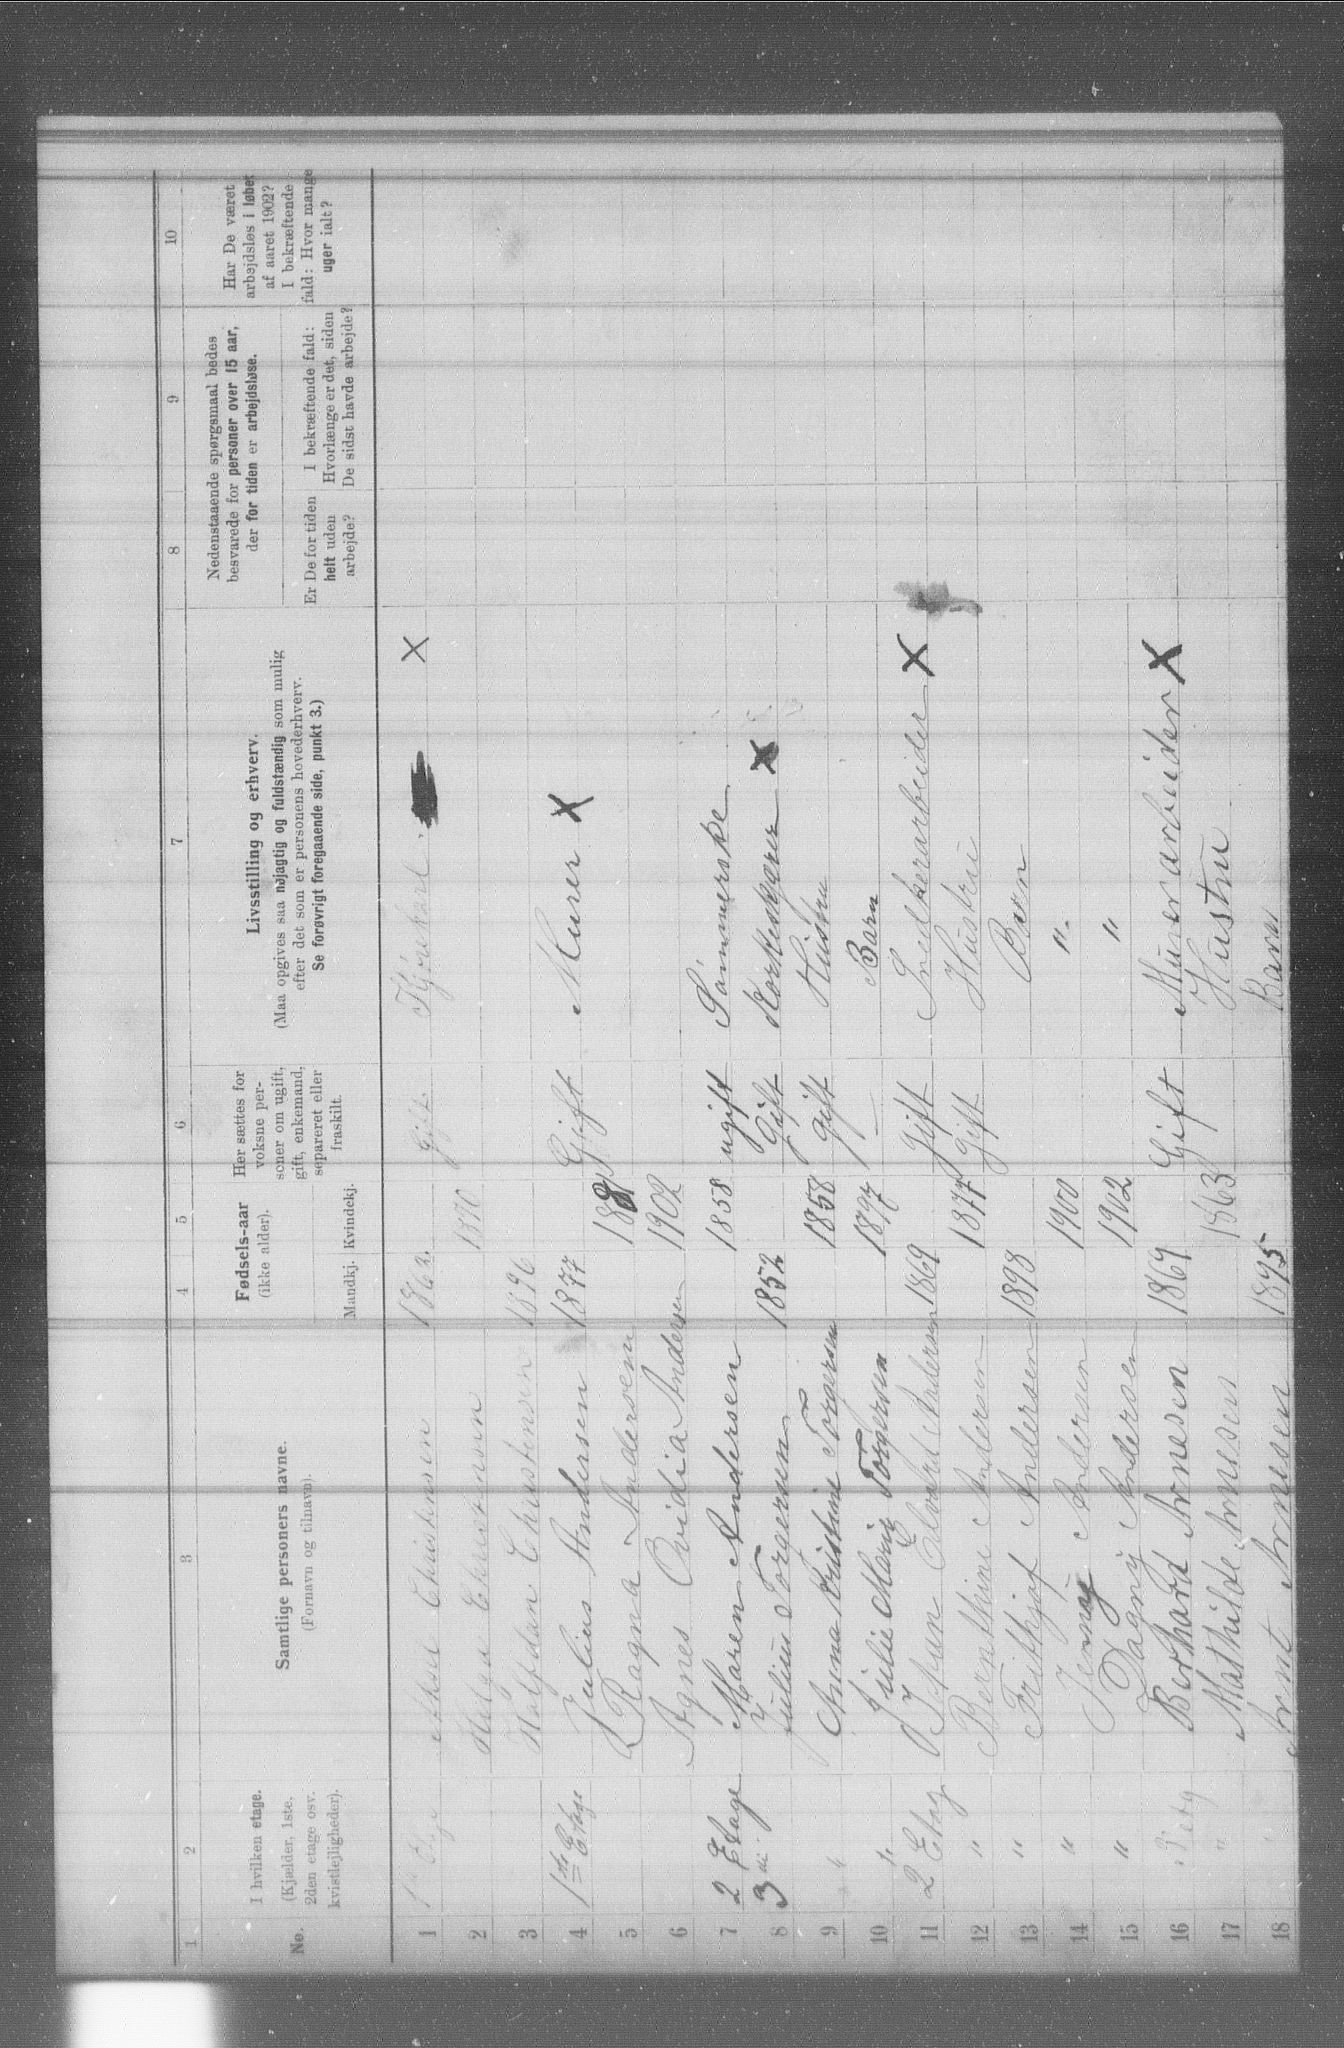 1 2 3 4 5 6 7 8 9 10
No.
I hvilken etage.
(Kjælder, 1ste,
2den etage osv.
kvistlejligheder).
Samtlige personers navne.
(Fornavn og tilnavn).
Fødsels-aar
(ikke alder).
Mandkj. Kvindekj.
Her sættes for
voksne per-
soner om ugift,
gift, enkemand,
separeret eller
fraskilt.
Livsstilling og erhverv.
(Maa opgives saa nøjagtig og fuldstændig som mulig
efter det som er personens hovederhverv.
Se forøvrigt foregaaende side, punkt 3.)
Nedenstaaende spørgsmaal bedes
besvarede for personer over 15 aar,
der for tiden er arbejdsløse.
Er De for tiden
helt uden
arbejde?
I bekræftende fald:
Hvorlænge er det, siden
De sidst havde arbejde?
Har De været
arbejdsløs i løbet
af aaret 1902?
I bekræftende
fald: Hvor mange
uger ialt?
1 Christensen 1862 Gift Kjørekarl X
2 Helga Christensen 1870
3 Halfdan Christensen 1896
4 1ste Etage Julius Andersen 1877 Gift Murer X
5 Ragna Andersen
6 Agnes Ovidia Andersen 1902
7 2 Etage Maren Andersen 1858 ugift Sömmerske
8 3 Julius Torgersen 1852 Gift Korkeskjærer X
9 Anna Kristine Torgersen 1858 gift Hustru
10 " Julie Marie Torgersen 1897 — Barn
11 2 Etag Johan Edvard Andersen 1869 gift Snedkerarbeider X
12 " Bernthine Andersen 1877 gift Hustru
13 " Frithjof Andersen 1898 Barn
14 " Jenny Andersen 1900 "
15 " Dagny Andersen 1902 "
16 Bernhard Arnesen 1869 Gift Murerarbeider X
17 " Mathilde Arnesen 1863 Hustru
18 Arnt Arnesen 1895 Barn